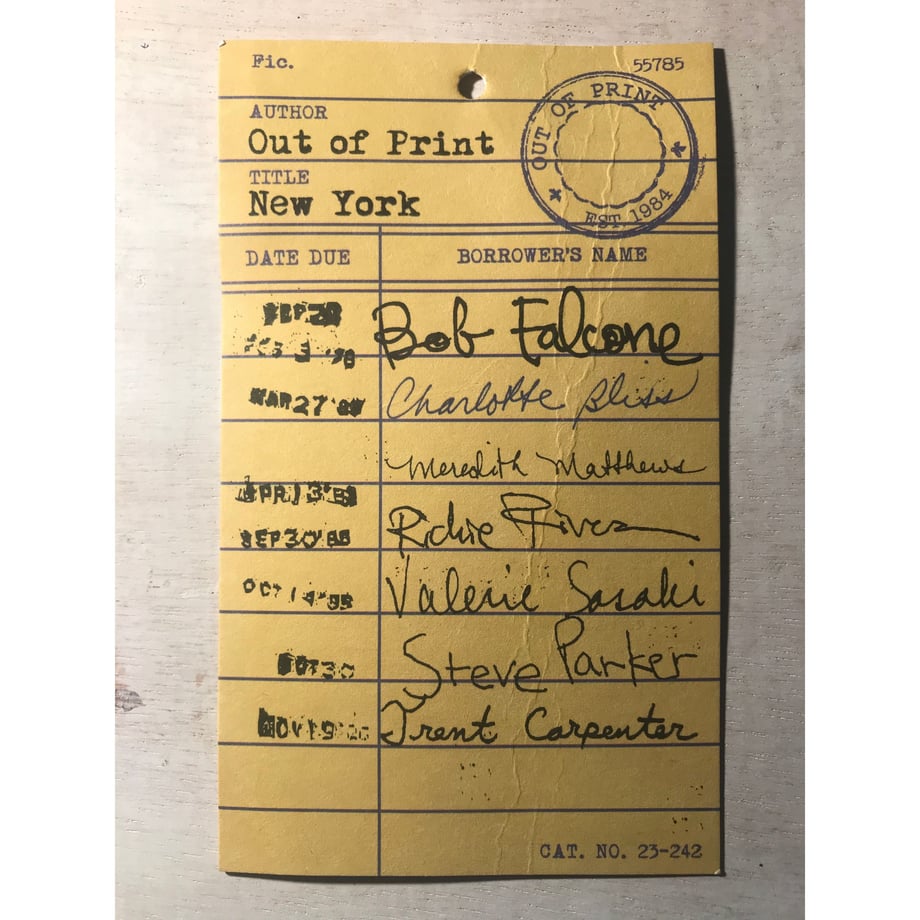 Fic. 55785
AUTHOR
Out of Print
TITLE
New York
OUT OF PRINT
EST. 1984
DATE DUE BORROWER'S NAME
SEP 28
3 '78 Bob Falcone
MAR 27 Charlotte Bliss
Meredith Matthews
APR 13
SEP 30 '88 Richie
OCT 14 Valerie Sasaki
OCT 30 Steve Parker
NOV 19 Trent Carpenter
CAT. NO. 23-242